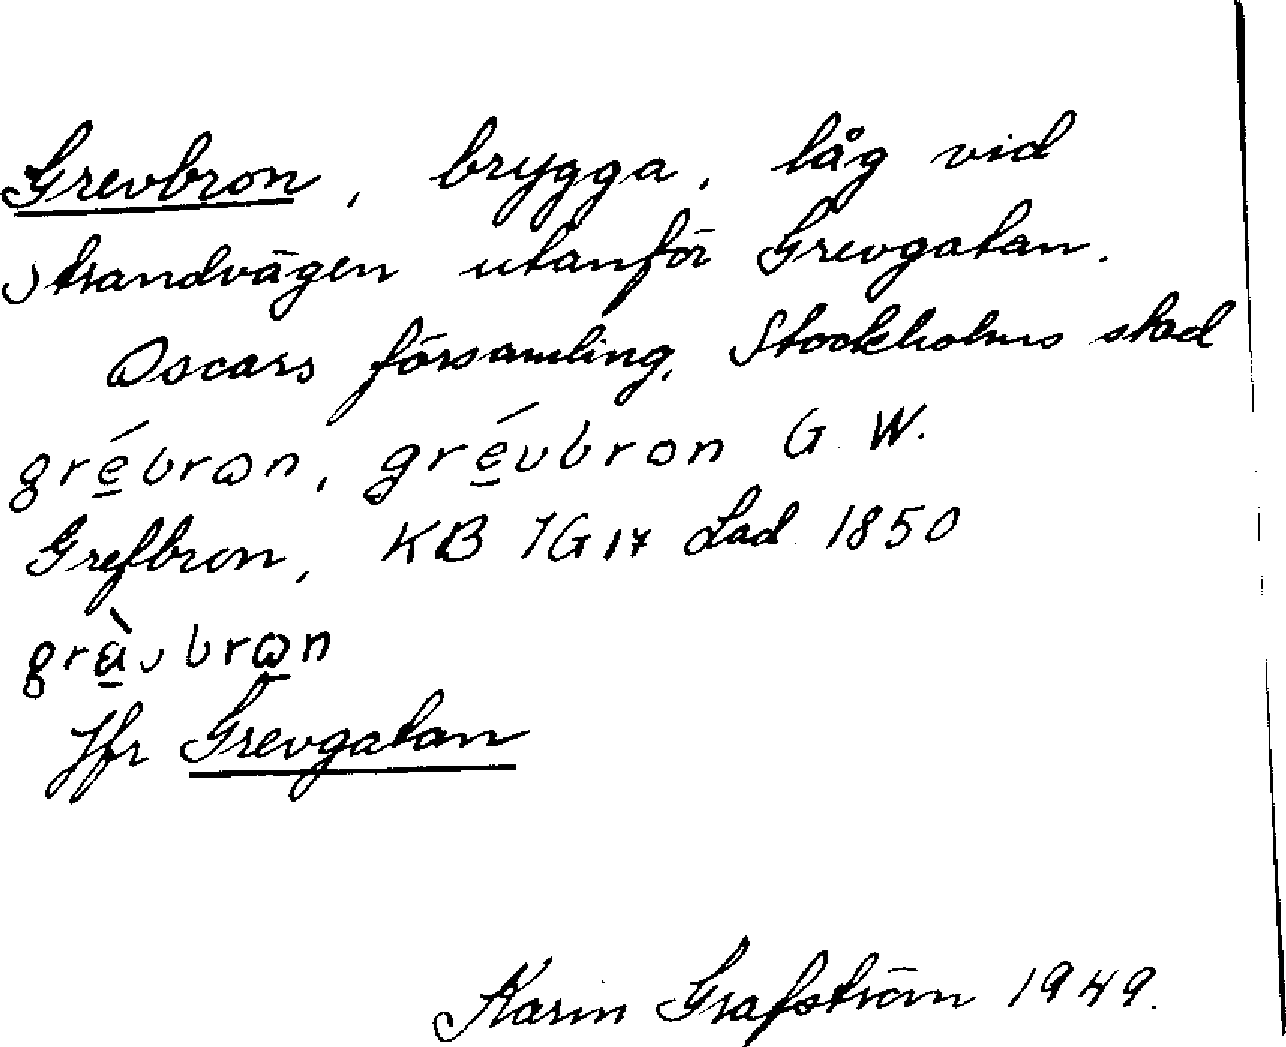 Grevbron, brygga, låg vid
Strandvägen utanför Grevgatan.
Oscars församling, Stockholms stad
gré̲brɷn, gré̲vbron G. W.
Grefbron, KB IG 17 Lad. 1850
grà̲vbrɷ̲n
Jfr Grevgatan
Karin Grafström 1949.